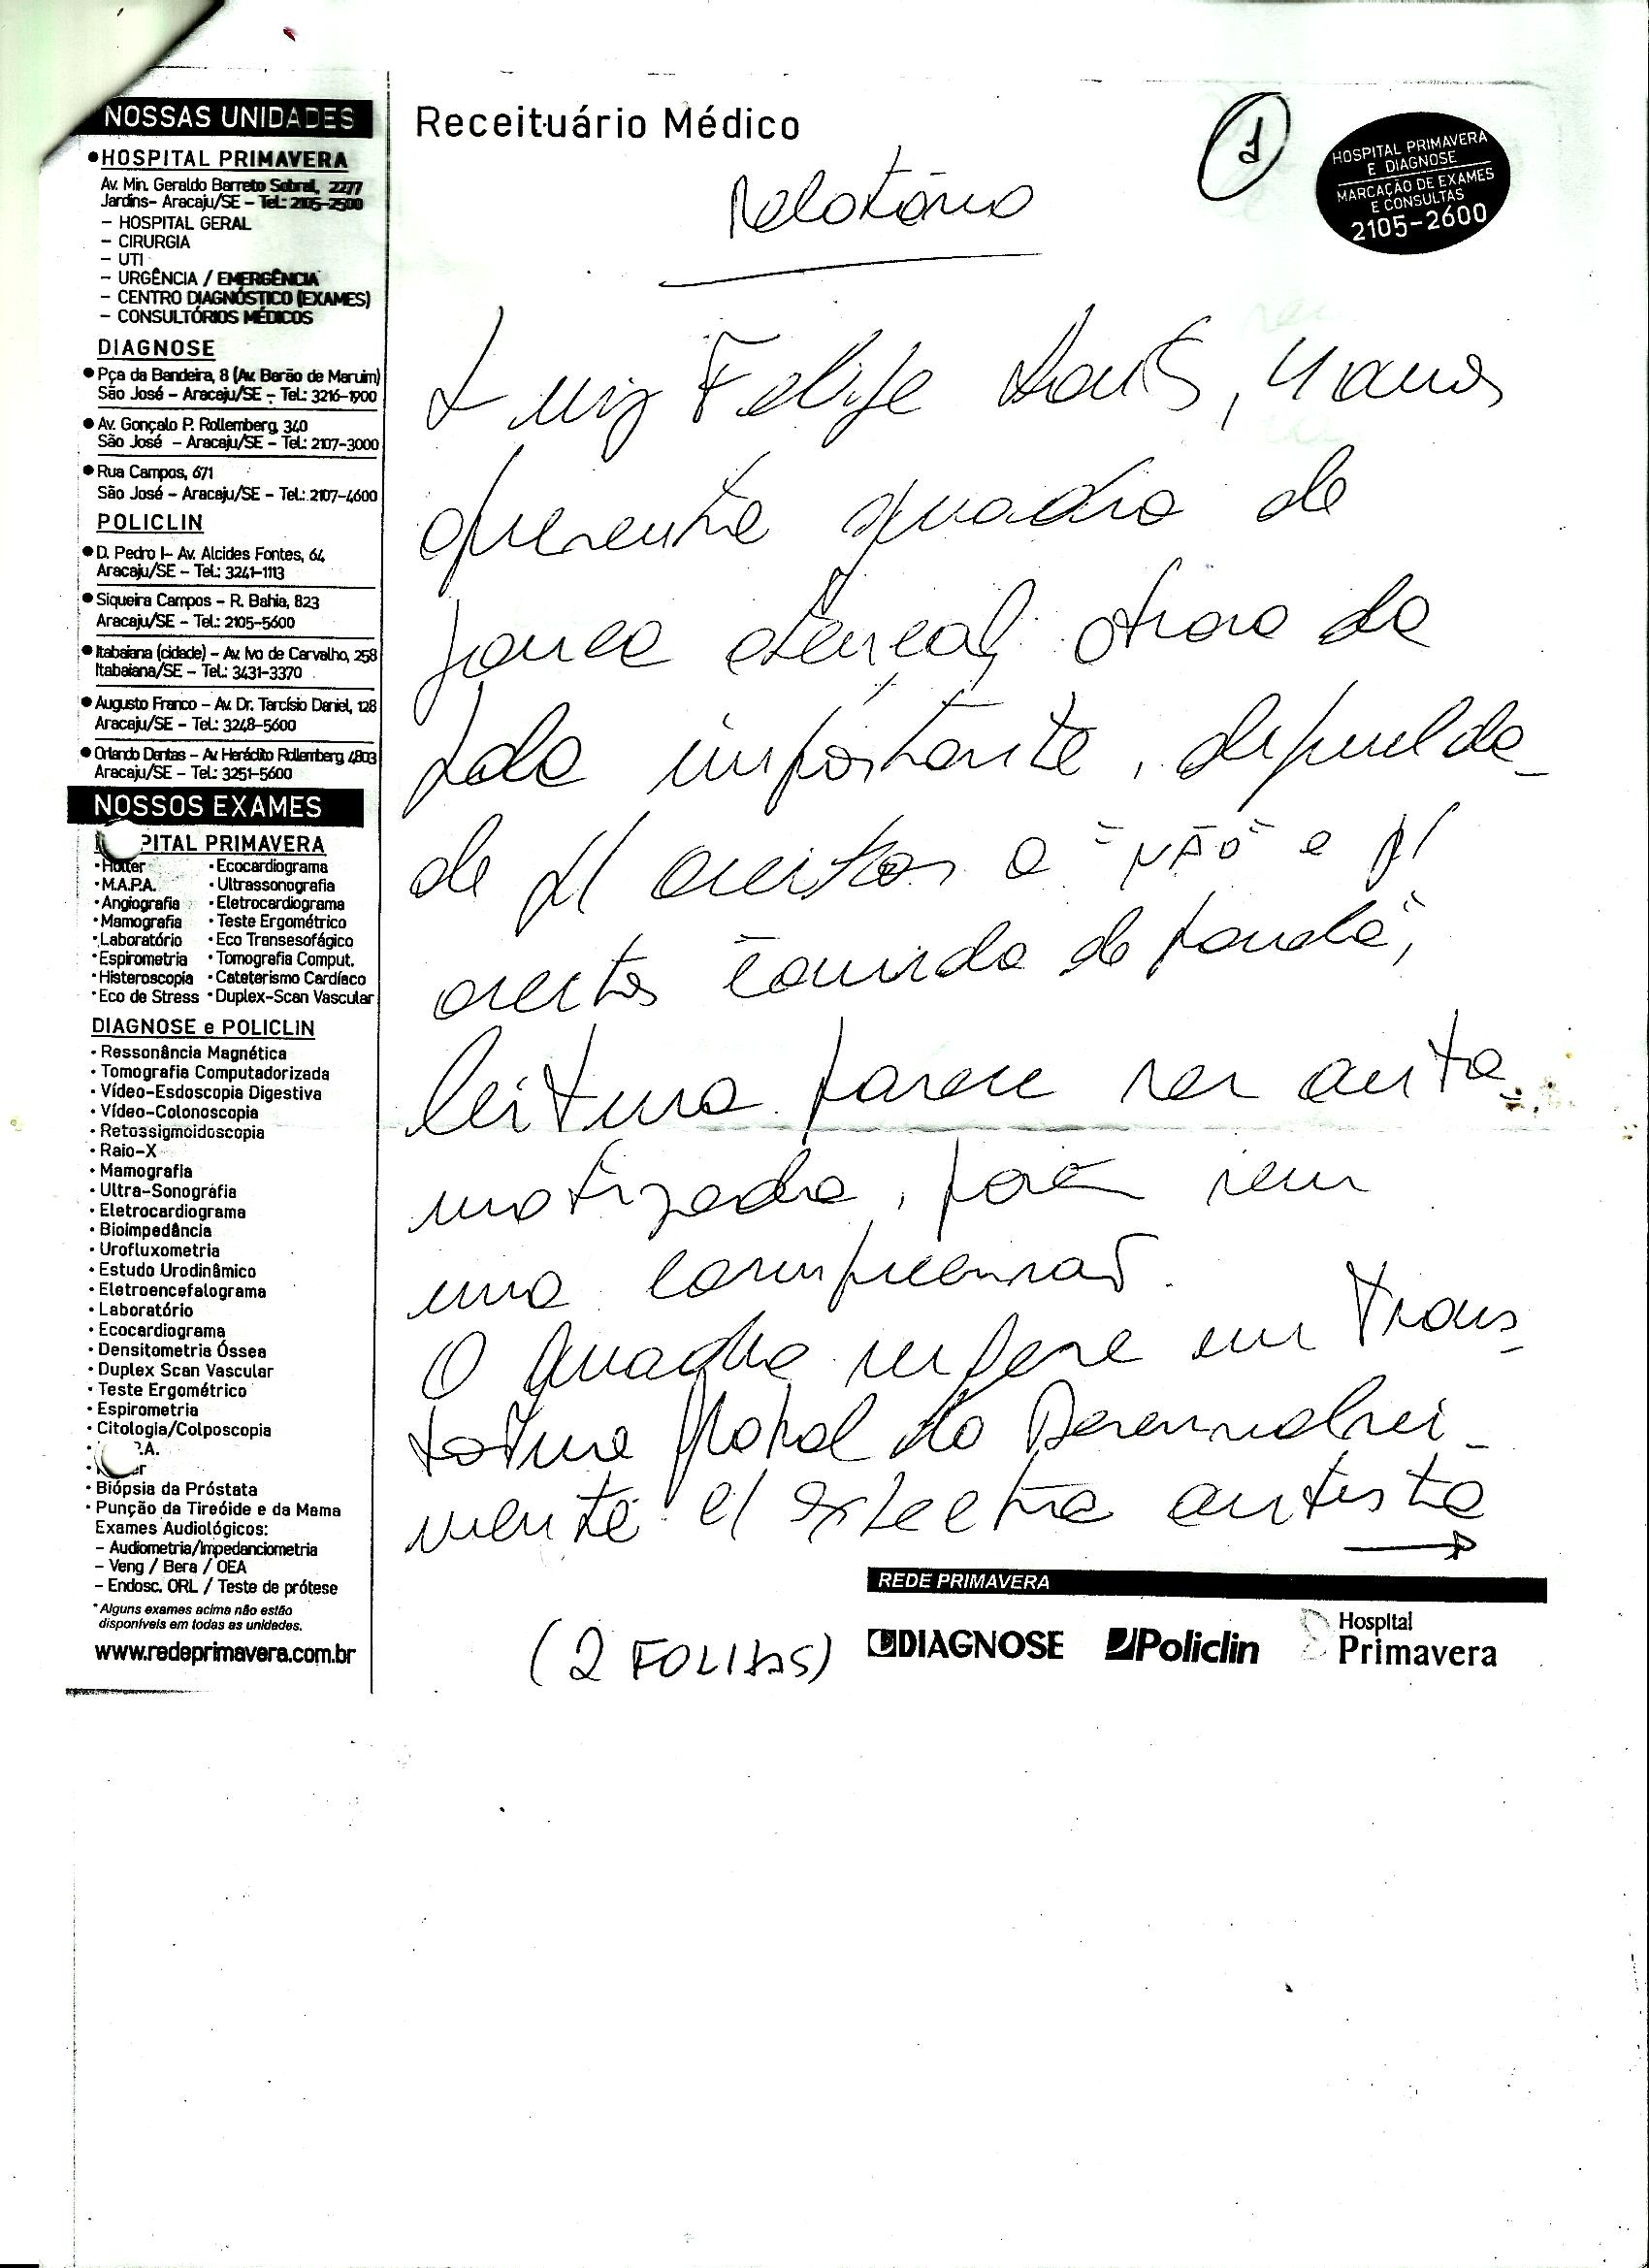 NOSSAS UNIDADES
•HOSPITAL PRIMAVERA
Av. Min. Geraldo Barreto Sobral, 2277
Jardins- Aracaju/SE - Tel.: 2105-2500
- HOSPITAL GERAL
- CIRURGIA
- UTI
- URGÊNCIA / EMERGÊNCIA
- CENTRO DIAGNÓSTICO (EXAMES)
- CONSULTÓRIOS MÉDICOS
DIAGNOSE
• Pça da Bandeira, 8 (Av. Barão de Maruim)
São José - Aracaju/SE - Tel.: 3216-1900
• Av. Gonçalo P. Rollemberg, 340
São José - Aracaju/SE - Tel.: 2107-3000
• Rua Campos, 671
São José - Aracaju/SE - Tel.: 2107-4600
POLICLIN
• D. Pedro I- Av. Alcides Fontes, 64
Aracaju/SE - Tel.: 3241-1113
• Siqueira Campos - R. Bahia, 823
Aracaju/SE - Tel.: 2105-5600
• Itabaiana (cidade) - Av. Ivo de Carvalho, 258
Itabaiana/SE - Tel.: 3431-3370
• Augusto Franco - Av. Dr. Tarcísio Daniel, 128
Aracaju/SE - Tel.: 3248-5600
• Orlando Dantas - Av Heráclito Rollemberg, 4803
Aracaju/SE - Tel.: 3251-5600
NOSSOS EXAMES
PITAL PRIMAVERA
• Holter • Ecocardiograma
• M.A.P.A. • Ultrassonografia
• Angiografia • Eletrocardiograma
• Mamografia • Teste Ergométrico
• Laboratório • Eco Transesofágico
• Espirometria • Tomografia Comput.
• Histeroscopia • Cateterismo Cardíaco
• Eco de Stress • Duplex-Scan Vascular
DIAGNOSE e POLICLIN
• Ressonância Magnética
• Tomografia Computadorizada
• Vídeo-Esdoscopia Digestiva
• Vídeo-Colonoscopia
• Retossigmoidoscopia
• Raio-X
• Mamografia
• Ultra-Sonografia
• Eletrocardiograma
• Bioimpedância
• Urofluxometria
• Estudo Urodinâmico
• Eletroencefalograma
• Laboratório
• Ecocardiograma
• Densitometria Óssea
• Duplex Scan Vascular
• Teste Ergométrico
• Espirometria
• Citologia/Colposcopia
• P.A.
• Biópsia da Próstata
• Punção da Tireóide e da Mama
Exames Audiológicos:
- Audiometria/Impedanciometria
- Veng / Bera / OEA
- Endosc. ORL / Teste de prótese
*Alguns exames acima não estão
disponíveis em todas as unidades.
www.redeprimavera.com.br
Receituário Médico
1
HOSPITAL PRIMAVERA
E DIAGNOSE
MARCAÇÃO DE EXAMES
E CONSULTAS
2105-2600
Relatório
Luiz Felipe, 4 anos
apresenta quadro de
atraso de
fala importante, dificulda-
de p/ aceitar o "NÃO" e p/
certos "comando de parada",
leitura parece ser auto-
matizada, porém sem
uma compreensão.
O quadro infere em trans-
torno global do Desenvolvi-
mento c/ espectro autista
→
(2 FOLHAS)
REDE PRIMAVERA
DIAGNOSE Policlin Hospital
Primavera